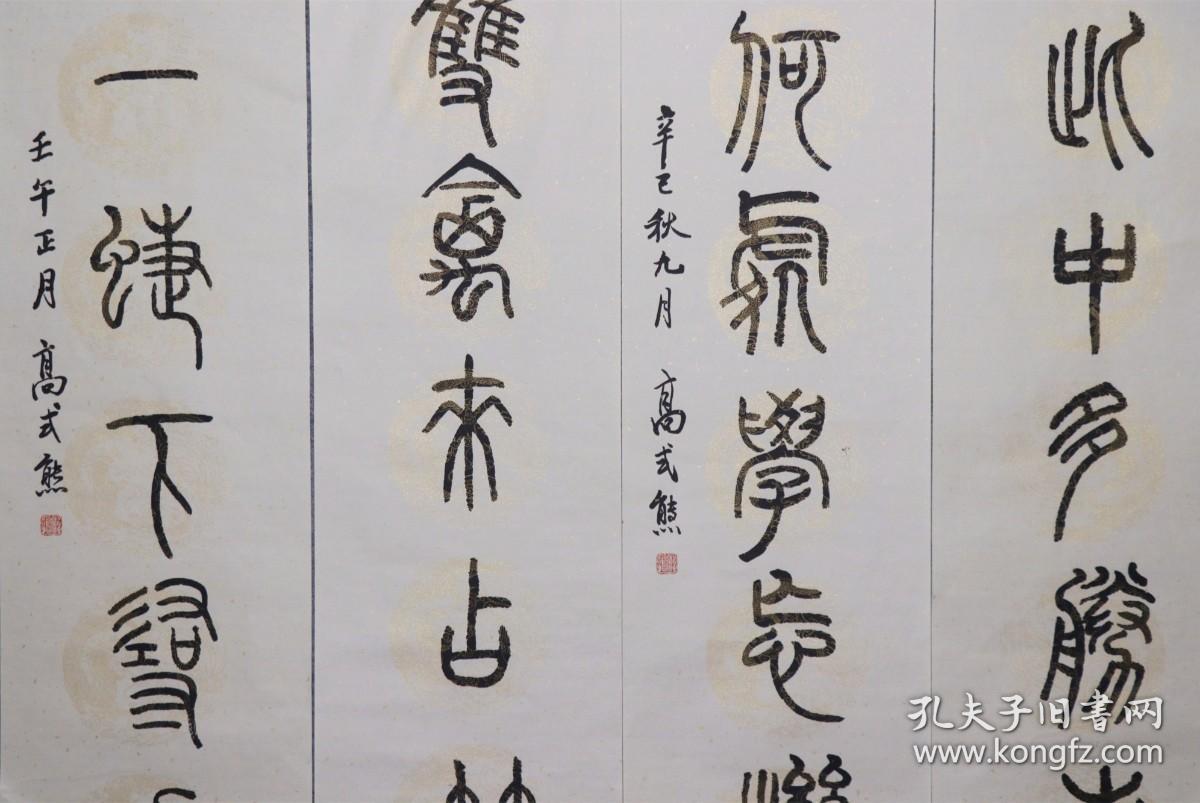 此中多勝
何處學忘
辛巳秋九月 高式熊
雙禽來占
一蜨下尋
壬午正月 高式熊
孔夫子旧書网
www.kongfz.com